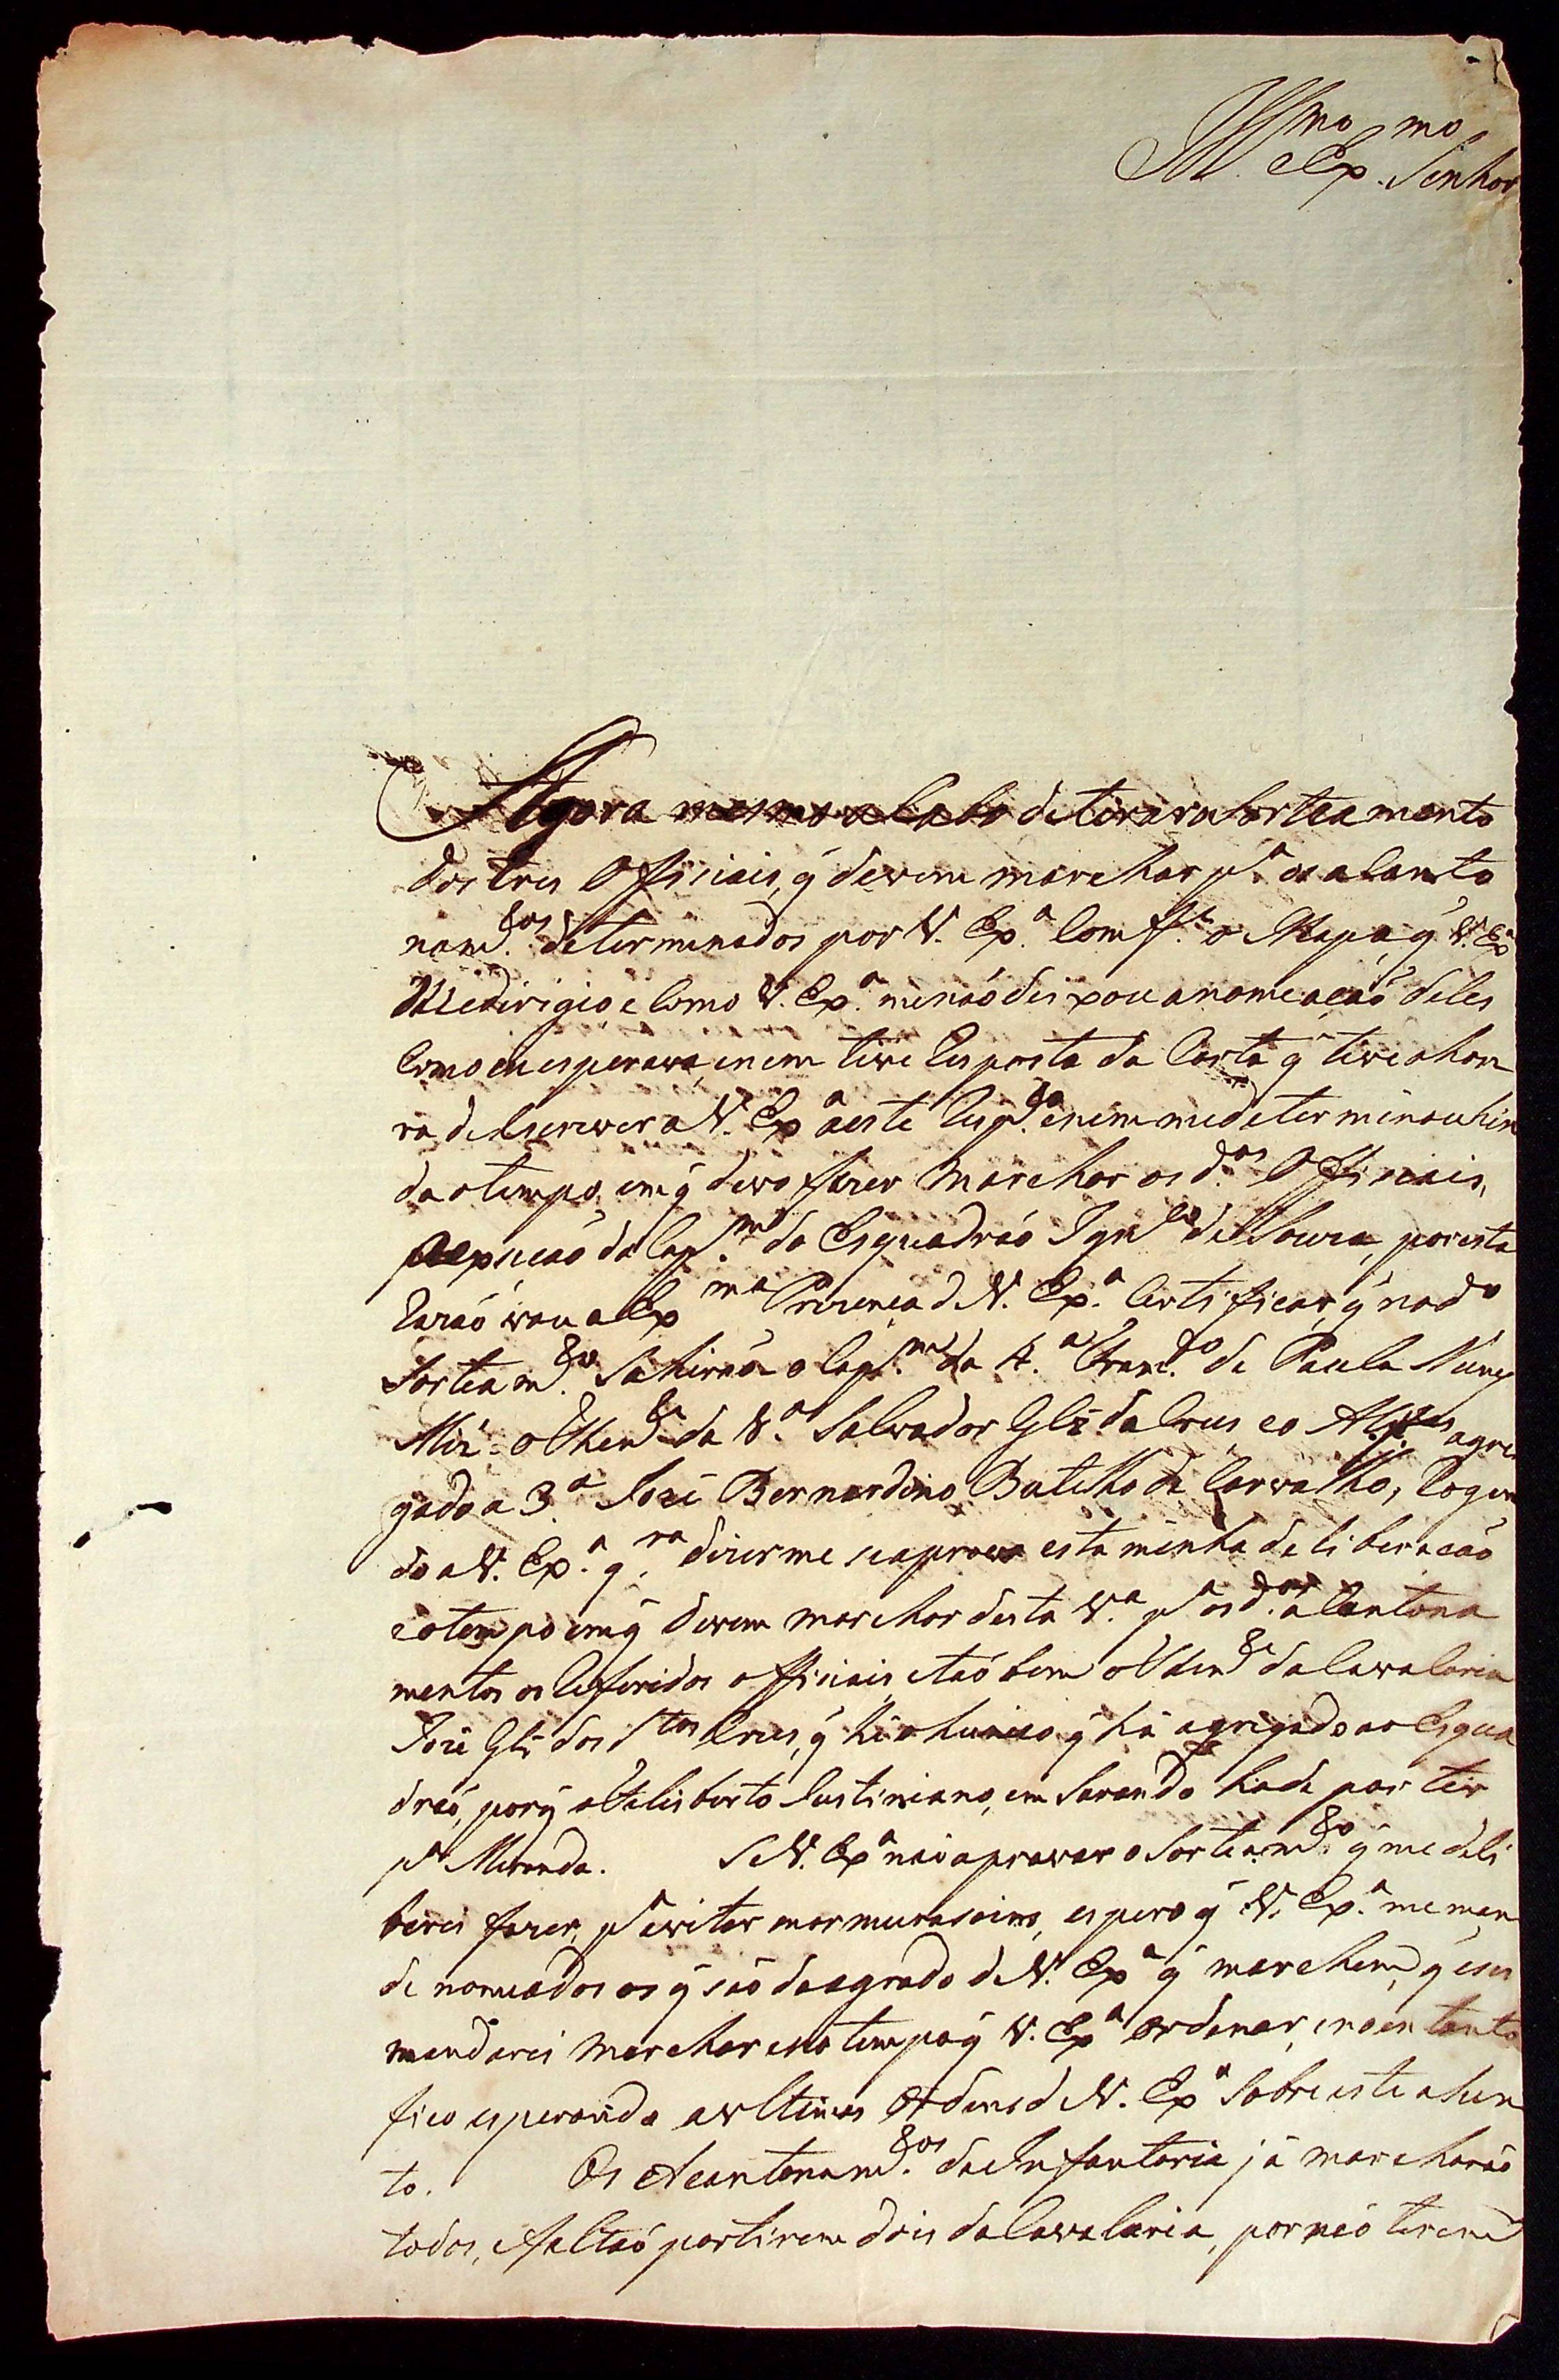 Ill.mo Ex.mo Senhor
Agora mesmo acabo de tirar o sorteamento
dos tres Officiais, q̃ devem marchar p.a os acanto
nam.tos determinados por V. Ex.a comf.e o Mapa, q̃ V. Ex.a
Me dirigio e como V. Ex.a me naó deixou a nomeacaó deles
como eu esperava, e nem tive Resposta da Carta q̃ tive ahon
ra de escrever a V. Ex.a aeste Resp.to enem medeterminou hin
da otempo, em q̃ devo fazer marchar os d.os Officiais,
a cap.m do Esquadraó Ign.co de Souza, por esta
Razaó vou a Ex.ma Prezenca d V. Ex.a Certificar, q̃ no d.o
Sorteam.to Sahiraó o Cap.m da 4.a Fran.co de Paula Nunes
o Then.te da V.a Salvador Glz̃ da Crus eo Alferes agre
gado a 3.a Jozé Bernardino Botelho de Carvalho, Rogan
do a V. Ex.a q.ra dizerme seaprova esta minha deliberacaó
eotempo em q̃ devem marchar desta V.a p.a os d.os acantona
mentos os Referidos officiais, etaóbem o Then.te da Cavalaria
Jozé Glz̃ dos S.tos Crus, q̃ hé ohunico q̃ há agregado ao Esqua
draó, porq̃ o Felisberto Justiniano, em Sarando hade partir
p.a Miranda. Se V. Ex.a naó aprovar o Sorteam.to q̃ me deli
berei fazer, p.a evitar mormurasoins, espero q̃ V. Ex.a me man
de nomeados os q̃ saó do agrado d V. Ex.a q̃ marchem, q̃ eses
mandarei marchar eno tempo q̃ V. Ex.a Ordenar, enoentanto
fico esperando as ultimas Ordens d V. Ex.a Sobre este ahun
to. Os Acantonam.tos da Infantaria já marcharaó
todos, e faltaó partirem dois da Cavalaria, por naó terem